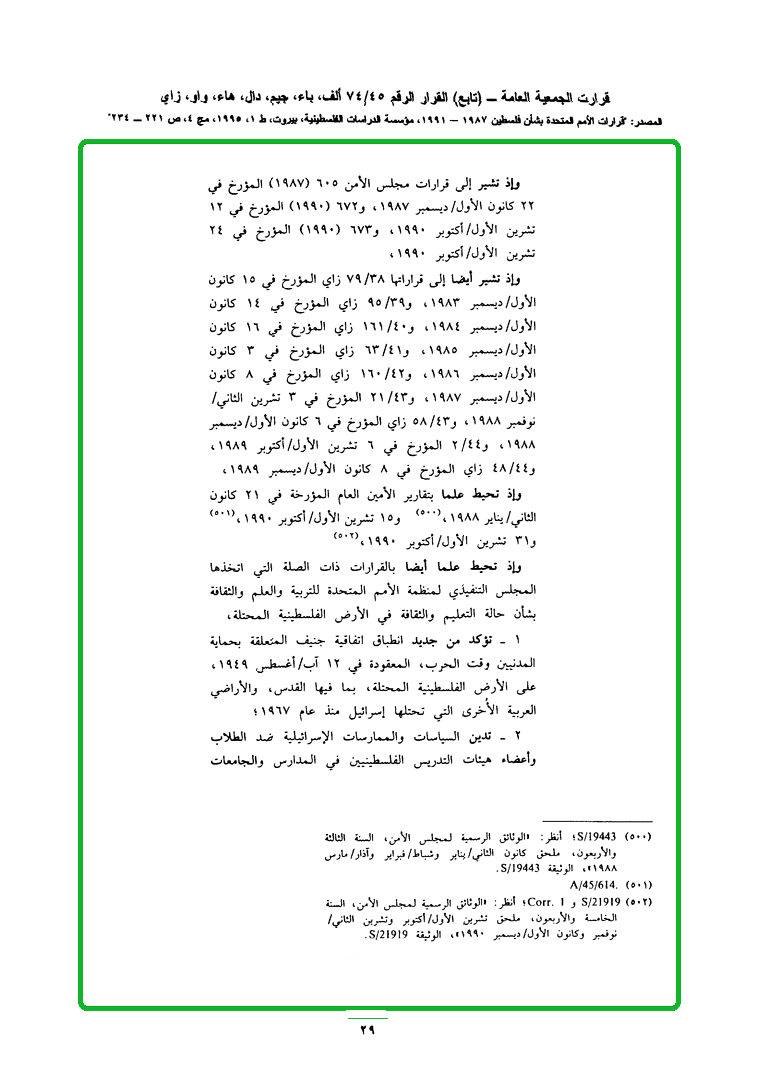 قرارت الجمعية العامة – (تابع) القرار الرقم ٧٤/٤٥ ألف، باء، جيم، دال، هاء، واو، زاي
المصدر: "قرارات الأمم المتحدة بشأن فلسطين ١٩٨٧ – ١٩٩١، مؤسسة الدراسات الفلسطينية، بيروت، ط ١، ١٩٩٥، مج ٤، ص ٢٢١ – ٢٣٤"
وإذ تشير إلى قرارات مجلس الأمن ٦٠٥ (١٩٨٧) المؤرخ في
٢٢ كانون الأول/ديسمبر ١٩٨٧، و٦٧٢ (١٩٩٠) المؤرخ في ١٢
تشرين الأول/أكتوبر ١٩٩٠، و٦٧٣ (١٩٩٠) المؤرخ في ٢٤
تشرين الأول/أكتوبر ١٩٩٠،
وإذ تشير أيضا إلى قراراتها ٧٩/٣٨ زاي المؤرخ في ١٥ كانون
الأول/ديسمبر ١٩٨٣، و٩٥/٣٩ زاي المؤرخ في ١٤ كانون
الأول/ديسمبر ١٩٨٤، و١٦١/٤٠ زاي المؤرخ في ١٦ كانون
الأول/ديسمبر ١٩٨٥، و٦٣/٤١ زاي المؤرخ في ٣ كانون
الأول/ديسمبر ١٩٨٦، و١٦٠/٤٢ زاي المؤرخ في ٨ كانون
الأول/ديسمبر ١٩٨٧، و٢١/٤٣ المؤرخ في ٣ تشرين الثاني/
نوفمبر ١٩٨٨، و٥٨/٤٣ زاي المؤرخ في ٦ كانون الأول/ديسمبر
١٩٨٨، و٢/٤٤ المؤرخ في ٦ تشرين الأول/أكتوبر ١٩٨٩،
و٤٨/٤٤ زاي المؤرخ في ٨ كانون الأول/ديسمبر ١٩٨٩،
وإذ تحيط علما بتقارير الأمين العام المؤرخة في ٢١ كانون
الثاني/يناير ١٩٨٨،(٥٠٠) و١٥ تشرين الأول/أكتوبر ١٩٩٠،(٥٠١)
و٣١ تشرين الأول/أكتوبر ١٩٩٠،(٥٠٢)
وإذ تحيط علما أيضا بالقرارات ذات الصلة التي اتخذها
المجلس التنفيذي لمنظمة الأمم المتحدة للتربية والعلم والثقافة
بشأن حالة التعليم والثقافة في الأرض الفلسطينية المحتلة،
١ ـ تؤكد من جديد انطباق اتفاقية جنيف المتعلقة بحماية
المدنيين وقت الحرب، المعقودة في ١٢ آب/أغسطس ١٩٤٩،
على الأرض الفلسطينية المحتلة، بما فيها القدس، والأراضي
العربية الأخرى التي تحتلها إسرائيل منذ عام ١٩٦٧؛
٢ ـ تدين السياسات والممارسات الإسرائيلية ضد الطلاب
وأعضاء هيئات التدريس الفلسطينيين في المدارس والجامعات
(٥٠٠) S/19443؛ أنظر: «الوثائق الرسمية لمجلس الأمن، السنة الثالثة
والأربعون، ملحق كانون الثاني/يناير وشباط/فبراير وآذار/مارس
١٩٨٨»، الوثيقة S/19443.
(٥٠١) A/45/614.
(٥٠٢) S/21919 و Corr. 1؛ أنظر: «الوثائق الرسمية لمجلس الأمن، السنة
الخامسة والأربعون، ملحق تشرين الأول/أكتوبر وتشرين الثاني/
نوفمبر وكانون الأول/ديسمبر ١٩٩٠»، الوثيقة S/21919.
٢٩